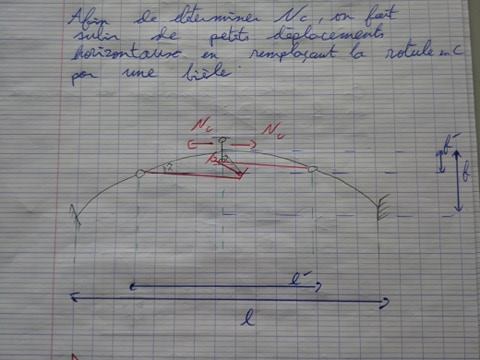 Afin de determiner Nc, on fait
subir de petits déplacements
horizontaux en remplaçant la rotule en C
par une bièle.
Nc
Nc
f'
f
l'
l